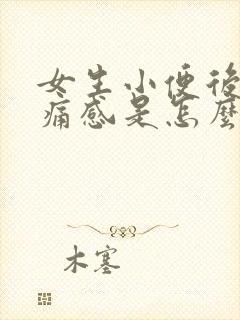 女生小便後
痛感是怎麼
木塞